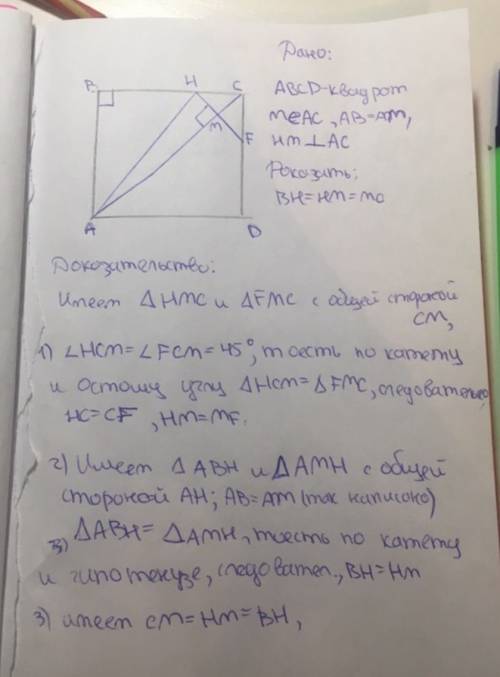 Дано:
B H C
ABCD-квадрат
M∈AC, AB=AM,
M
F
HM⊥AC
Доказать:
BH=HM=MC
A D
Доказательство:
Имеем △HMC и △FMC с общей стороной
CM,
1) ∠HCM=∠FCM=45°, тоесть по катету
и острому углу △HCM=△FMC, следовательно,
HC=CF, HM=MF.
2) Имеем △ABH и △AMH с общей
стороной AH; AB=AM (так написано)
3) △ABH=△AMH, тоесть по катету
и гипотенузе, следовател., BH=HM
3) имеем CM=HM=BH,